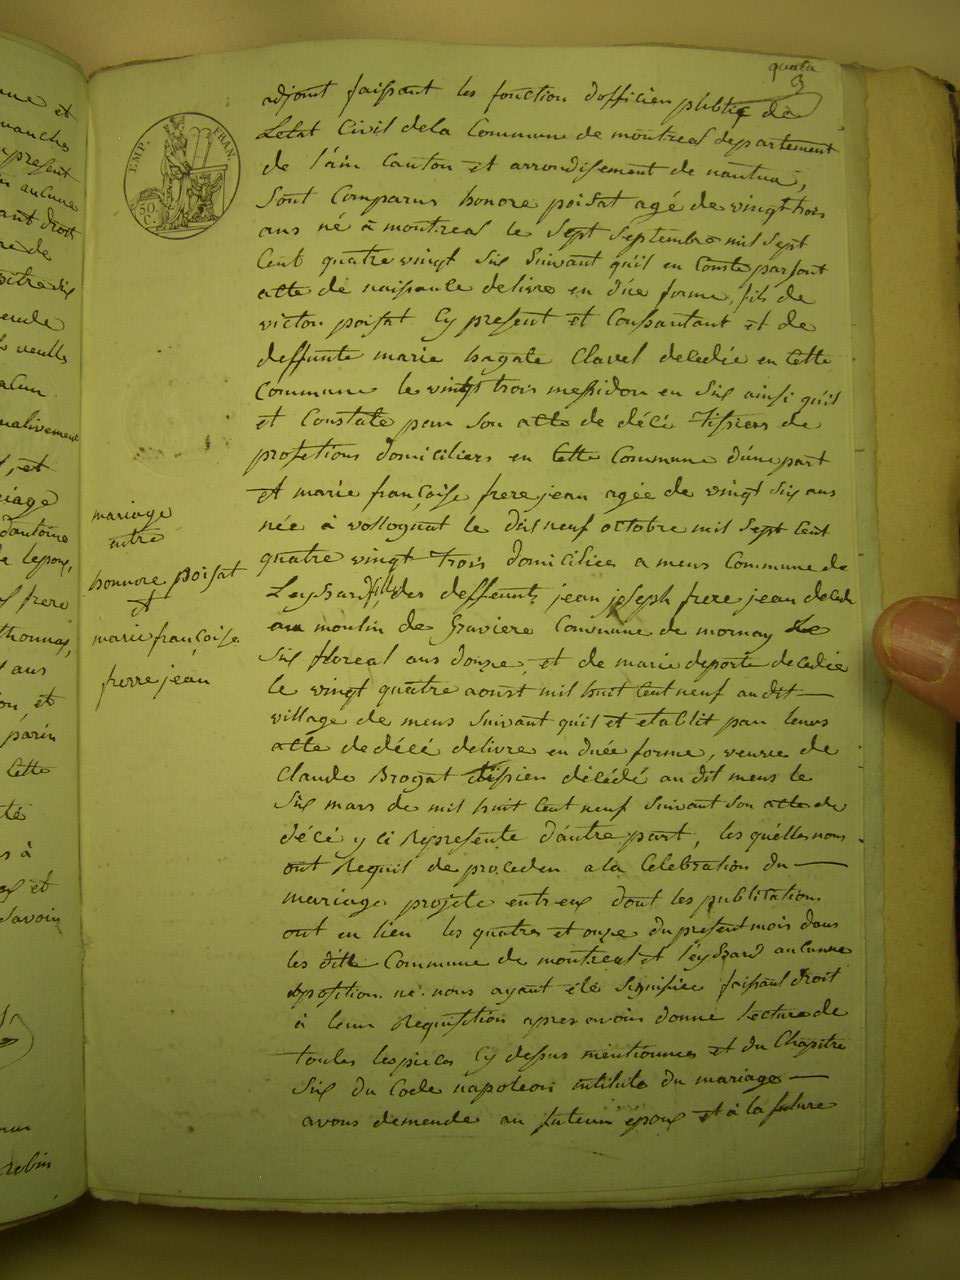 quatre
3
EMP. FRAN.
50. C.
adjoint faissant les fonction d'officier public de
Letat Civil dela Commune de montreal departement
de l'ain Canton et arrondissement de nantua,
sont Comparus honore poisat agé de vingt trois
ans né à montreal le sept septembre mil sept
Cent quatre vingt six suivant qu'il en Conste par son
acte de naissance delivre en due forme, fils de
victor poisat Cy present et Consantant et de
deffunte marie hagate Clavel decedée en Cette
Commune le vingt trois messidor en six ainsi qu'il
et Constate par son acte de décé Tissiers de
profetions domiciliers en Cette Commune d'une part
et marie françoise frere jean agée de vingt six ans
née à vollognat le dix neuf octobre mil sept Cent
quatre vingt trois domiciliee a mens Commune de
Leyssard, fille des deffeunts jean joseph frere jean decede
au moulin de Graviere Commune de mornay Le
six floreal ans douze, et de marie deporte decedée
le vingt quatre aoust mil huit Cent neuf au dit
village de mens suivant qu'il et etablit par leurs
acte de décé delivre en duée forme, veuve de
Claude Brogat tissien décédé au dit mens le
six mars de mil huit Cent neuf suivant son acte de
décé y ci Represente d'autre part, les quélles nous
ont Requit de proceder a la Celebration du
mariage projete entr eux dont les publication
ont eu lieu les quatres et onze du present mois dans
les ditte Commune de montreal et l'eyssard aucunne
oposition ne nous ayant été signifiee faissant droit
à leur Requisition apres avoir donné Lecture de
toutes les pieces Cy dessus mentionnees et du Chapitre
six du Code napoleon intitule du mariage
avons demende au futeur epoux et à la future
mariage
entre
honnore poisat
et
marie françoise
frerre jean